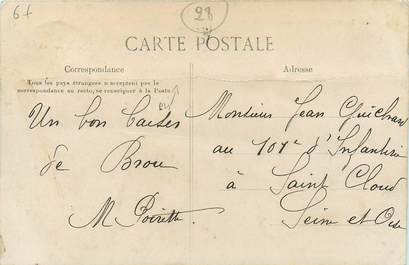 6f
28
CARTE POSTALE
Correspondance
Tous les pays étrangers n'acceptent pas la
correspondance au recto, se renseigner à la Poste
Un bon baiser
de Brou
M Poirette.
Adresse
Monsieur Jean Guichard
au 101e d'Infanterie
à Saint Cloud
Seine et Oise